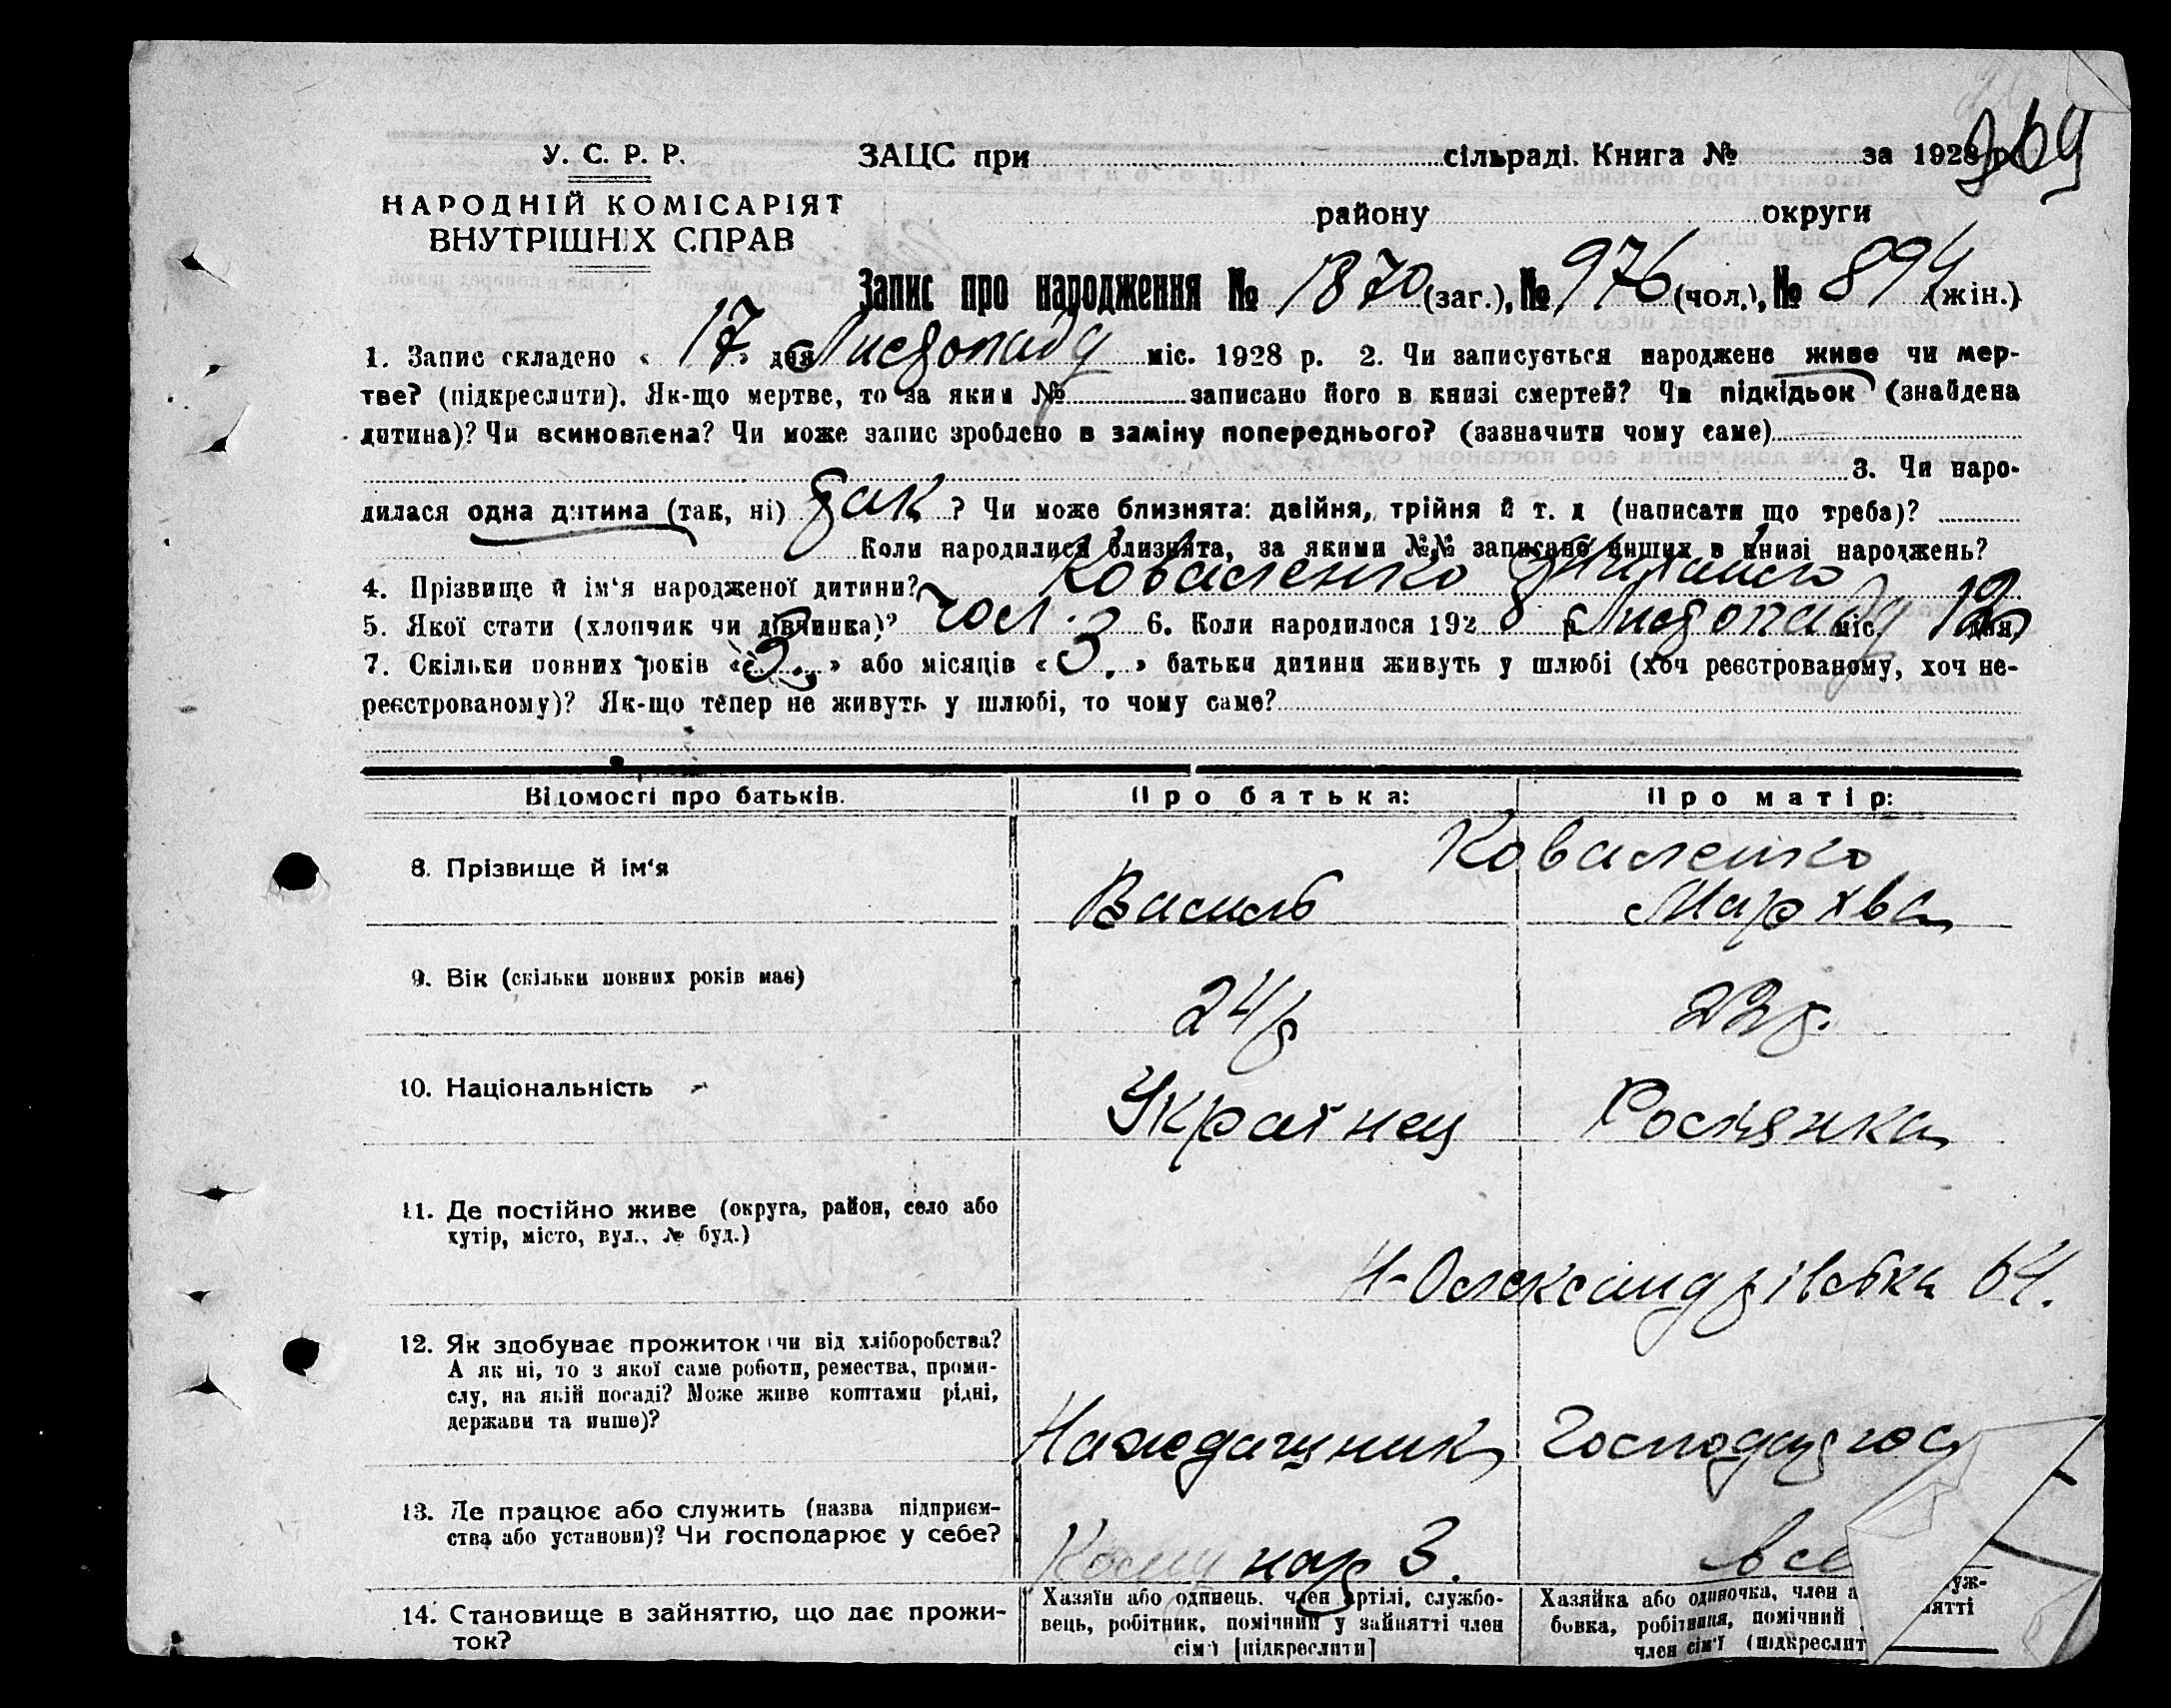 969
У. С. Р. Р.
ЗАЦС при сільраді. Книга № за 1928 р.
НАРОДНІЙ КОМІСАРІЯТ
ВНУТРІШНІХ СПРАВ
району округи
Запис про народження № 1870 (заг.), № 976 (чол.), № 894 (жін.)
1. Запис складено « 17 » дня Листопаду міс. 1928 р. 2. Чи записується народжене живе чи мер-
тве? (підкреслити). Як-що мертве, то за яким № записано його в книзі смертей? Чи підкідьок (знайдена
дитина)? Чи всиновлена? Чи може запис зроблено в заміну попереднього? (зазначити чому саме)
3. Чи наро-
дилася одна дитина (так, ні) так ? Чи може близнята: двійня, трійня й т. д (написати що треба)?
Коли народилися близнята, за якими №№ записано инших в книзі народжень?
4. Прізвище й ім'я народженої дитини? Коваленко
5. Якої стати (хлопчик чи дівчинка)? чол. 6. Коли народилося 1928 р Листопаду міс. 12 дня
7. Скільки повних років « 3 » або місяців « 3. » батьки дитини живуть у шлюбі (хоч реєстрованому, хоч не-
реєстрованому)? Як-що тепер не живуть у шлюбі, то чому саме?
Відомості про батьків. Про батька: Про матір:
Коваленко
8. Прізвище й ім'я Василь Мархва
9. Вік (скільки повних років має) 24 р 22 р.
10. Національність Українец Росіянка
11. Де постійно живе (округа, район, село або
хутір, місто, вул., № буд.)
Н-Олександрівська 64.
12. Як здобуває прожиток чи від хліборобства?
А як ні, то з якої саме роботи, ремества, проми-
слу, на якій посаді? Може живе коштами рідні,
держави та инше)?
Наждачник Господарює
13. Де працює або служить (назва підприєм-
ства або установи)? Чи господарює у себе?
Комунар 3. в се
14. Становище в зайняттю, що дає прожи-
ток?
Хазяїн або одинець, член артілі, службо-
вець, робітник, помічний у зайнятті член
сім'ї [підкреслити]
Хазяйка або одиночка, член а уж-
бовка, робітниця, помічний нятті
член сім'ї (підкреслит